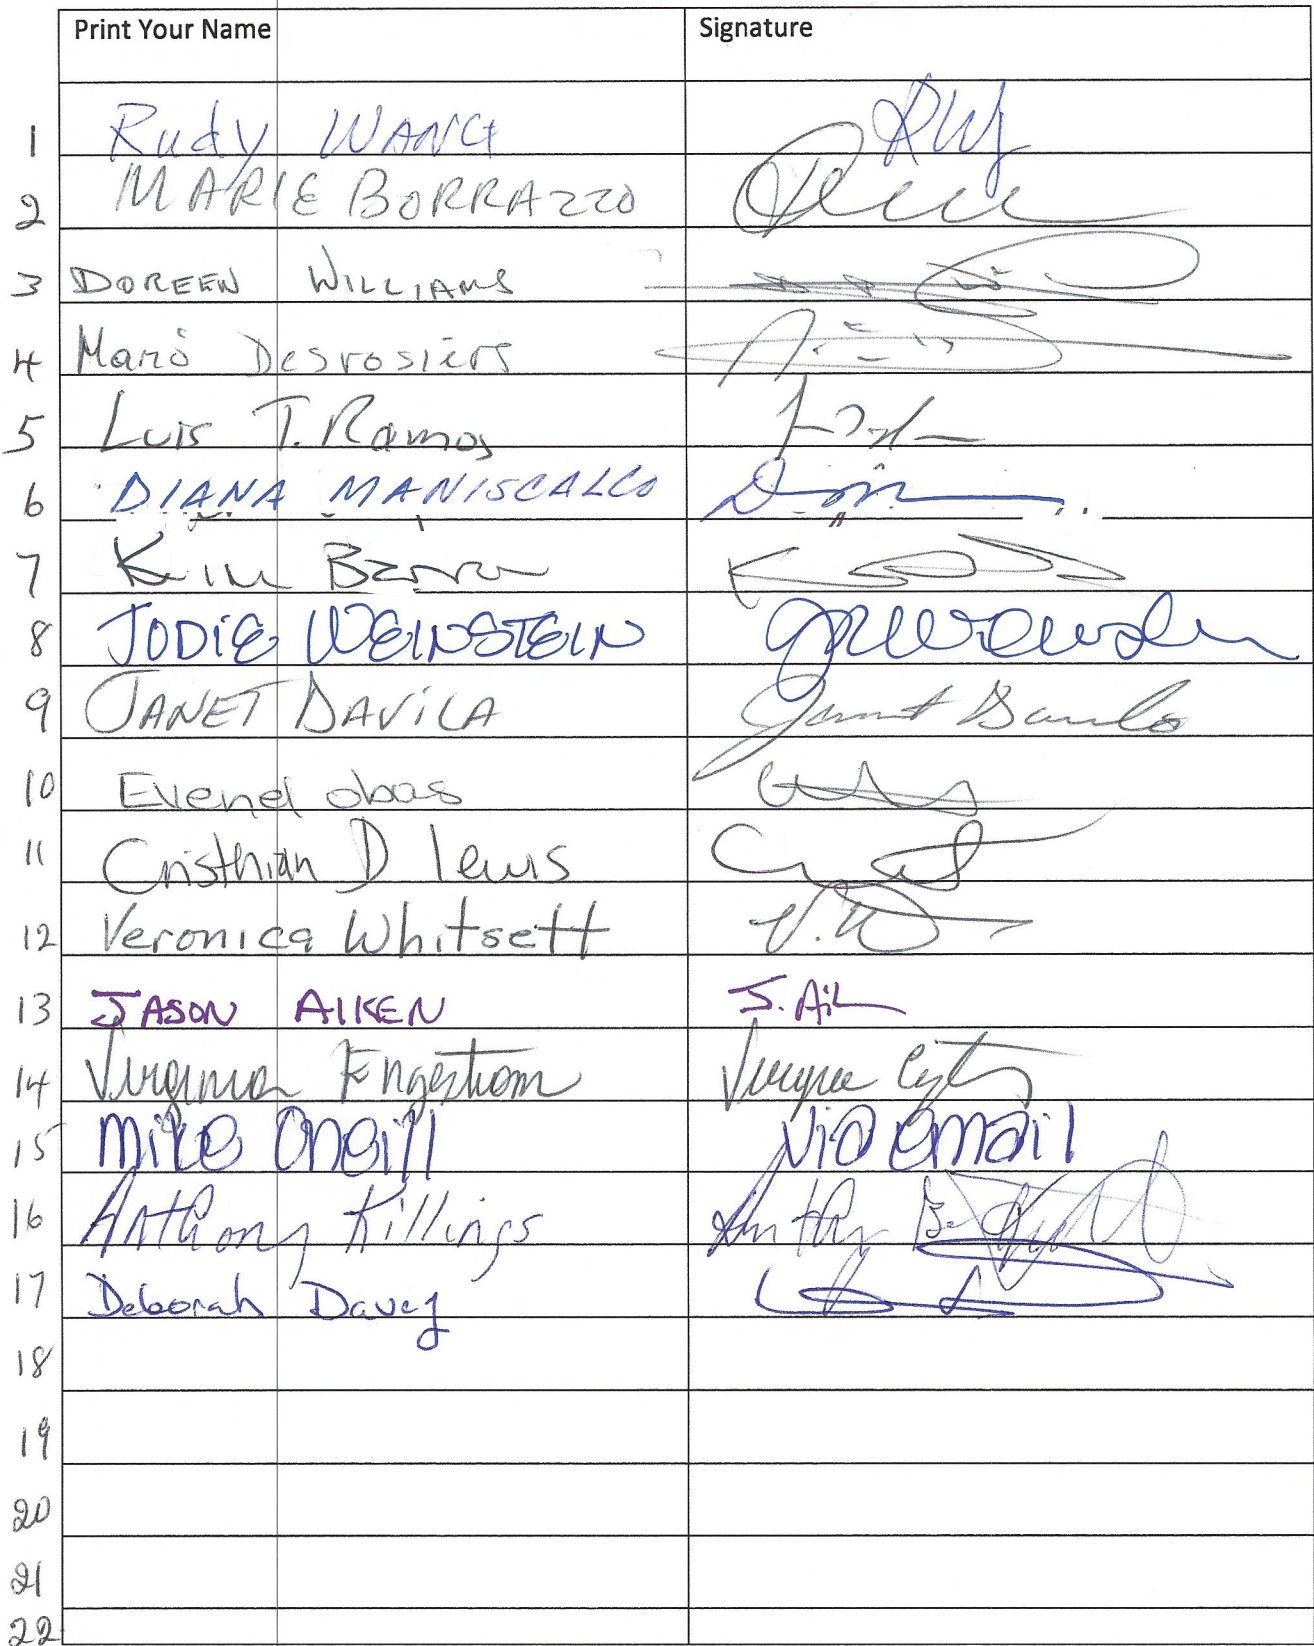 Print Your Name Signature
1 Rudy WANG
2 MARIE BORRAZZO
3 DOREEN WILLIAMS
4 Mario Desrosiers
5 Luis T. Ramos
6 DIANA MANISCALCO
7
8 JODIE WEINSTEIN
9 JANET DAVILA Janet Davila
10 Evenel obas
11 Cristhian D lewis
12 Veronica Whitsett V.W
13 JASON AIKEN J. Aik
14 Virginia Engstrom
15 Mike Oneill Via email
16 Anthony Killings
17 Deborah Davey
18
19
20
21
22